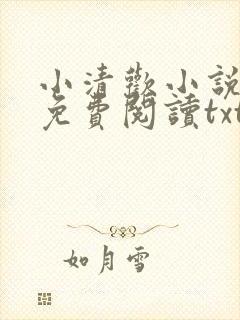 小清歡小說
免費閱讀txt
如月雪